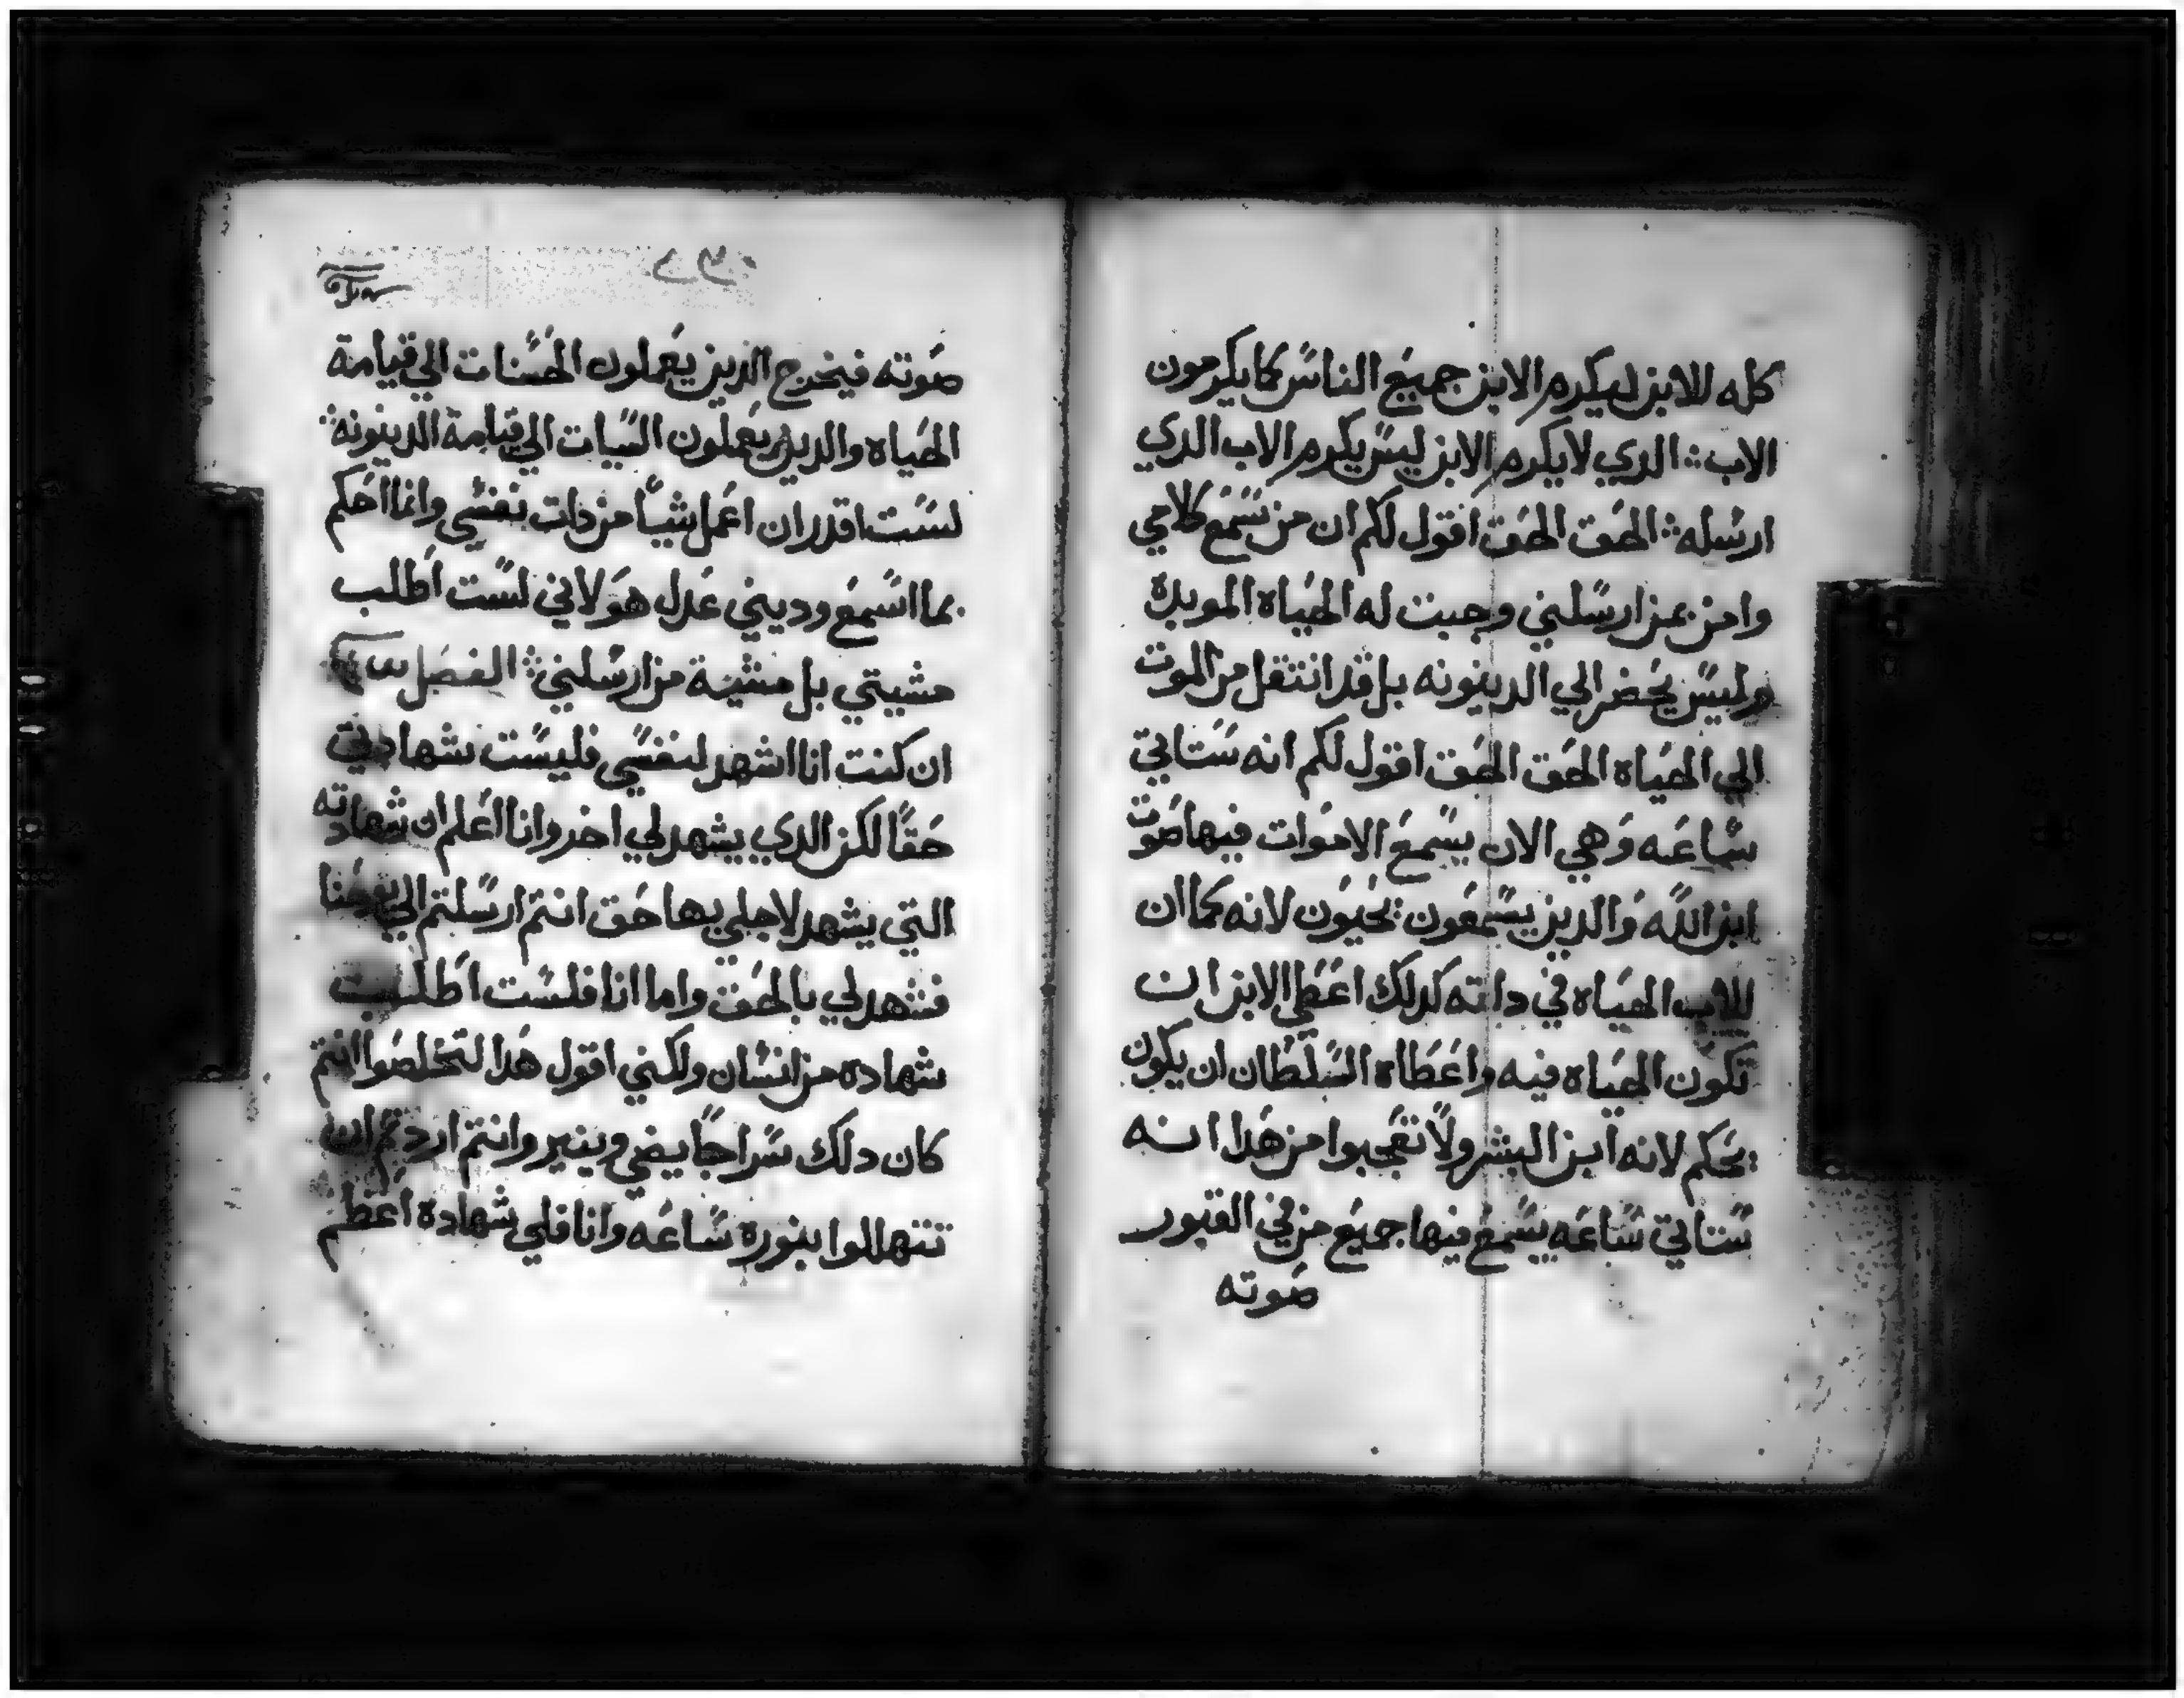 كله للابن ليكرم الابن جميع الناس كما يكرمون
الاب الدي لا يكرم الابن ليس يكرم الاب الدي
ارسله الحق الحق اقول لكم ان من سمع كلامي
وامن بمن ارسلني وجبت له الحياه الموبدة
وليس يحضر الي الدينونه بل قد انتقل من الموت
الي الحياه الحق الحق اقول لكم انه ستاتي
ساعه وهي الان يسمع الاموات فيها صوت
ابن الله والدين يسمعون يحيون لانه كما ان
للاب الحياه في داته كدلك اعطي الابن ان
تكون الحياه فيه واعطاه السلطان ان يكون
يحكم لانه ابن البشر ولا تعجبوا من هدا انه
ستاتي ساعه يسمع فيها جميع من في القبور
صوته
صوته فيخرج الدين يعملون الحسنات الي قيامة
الحياه والدين يعملون السيات الي قيامة الدينونه
لست اقدر ان اعمل شيا من دات نفسي وانما احكم
بما اسمع وديني عدل هو لاني لست اطلب
مشيتي بل مشية من ارسلني الفصل
ان كنت انا اشهد لنفسي فليست شهادتي
حقا لكن الدي يشهد لي اخر وانا اعلم ان شهادته
التي يشهد لاجلي بها حق انتم ارسلتم الي يوحنا
فشهد لي بالحق واما انا فلست اطلب
شهاده من انسان ولكني اقول هدا لتخلصوا انتم
كان دلك سراجا يضي وينير وانتم اردتم ان
تتهللوا بنوره ساعه وانا فلي شهادة اعظم